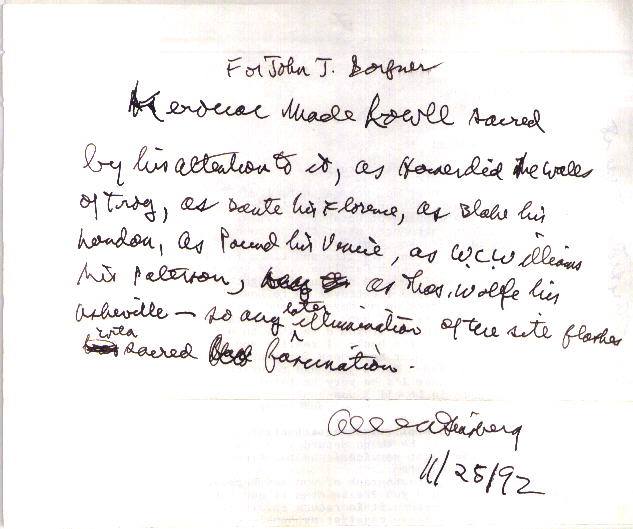 For John J. Dorfner
Kerouac Made Lowell sacred
by his attention to it, as Homer did the walls
of Troy, as Dante his Florence, as Blake his
London, as Pound his Venice, as W.C. Williams
his Paterson, as Thos. Wolfe his
Asheville — so any later illumination of the site flashes
with sacred fascination.
Allen Ginsberg
11/25/92